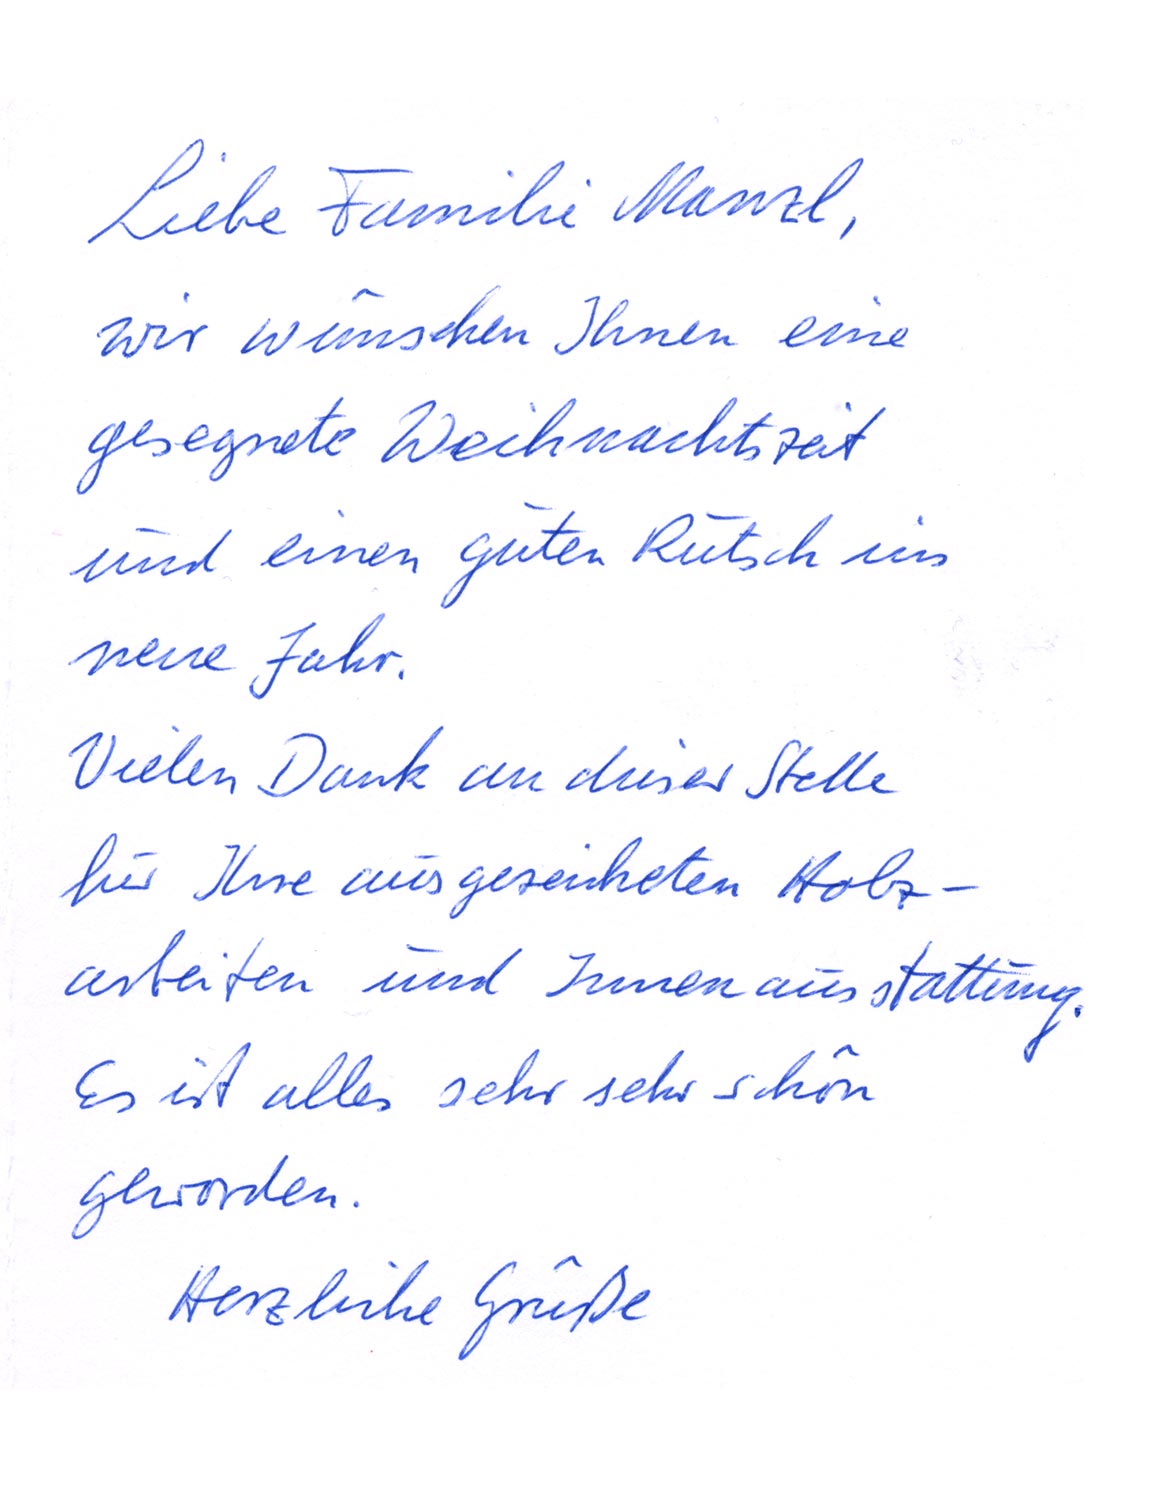 Liebe Familie Manzl,
wir wünschen Ihnen eine
gesegnete Weihnachtszeit
und einen guten Rutsch ins
neue Jahr.
Vielen Dank an dieser Stelle
für Ihre ausgezeichneten Holz-
arbeiten und Innenausstattung.
Es ist alles sehr sehr schön
geworden.
Herzliche Grüße